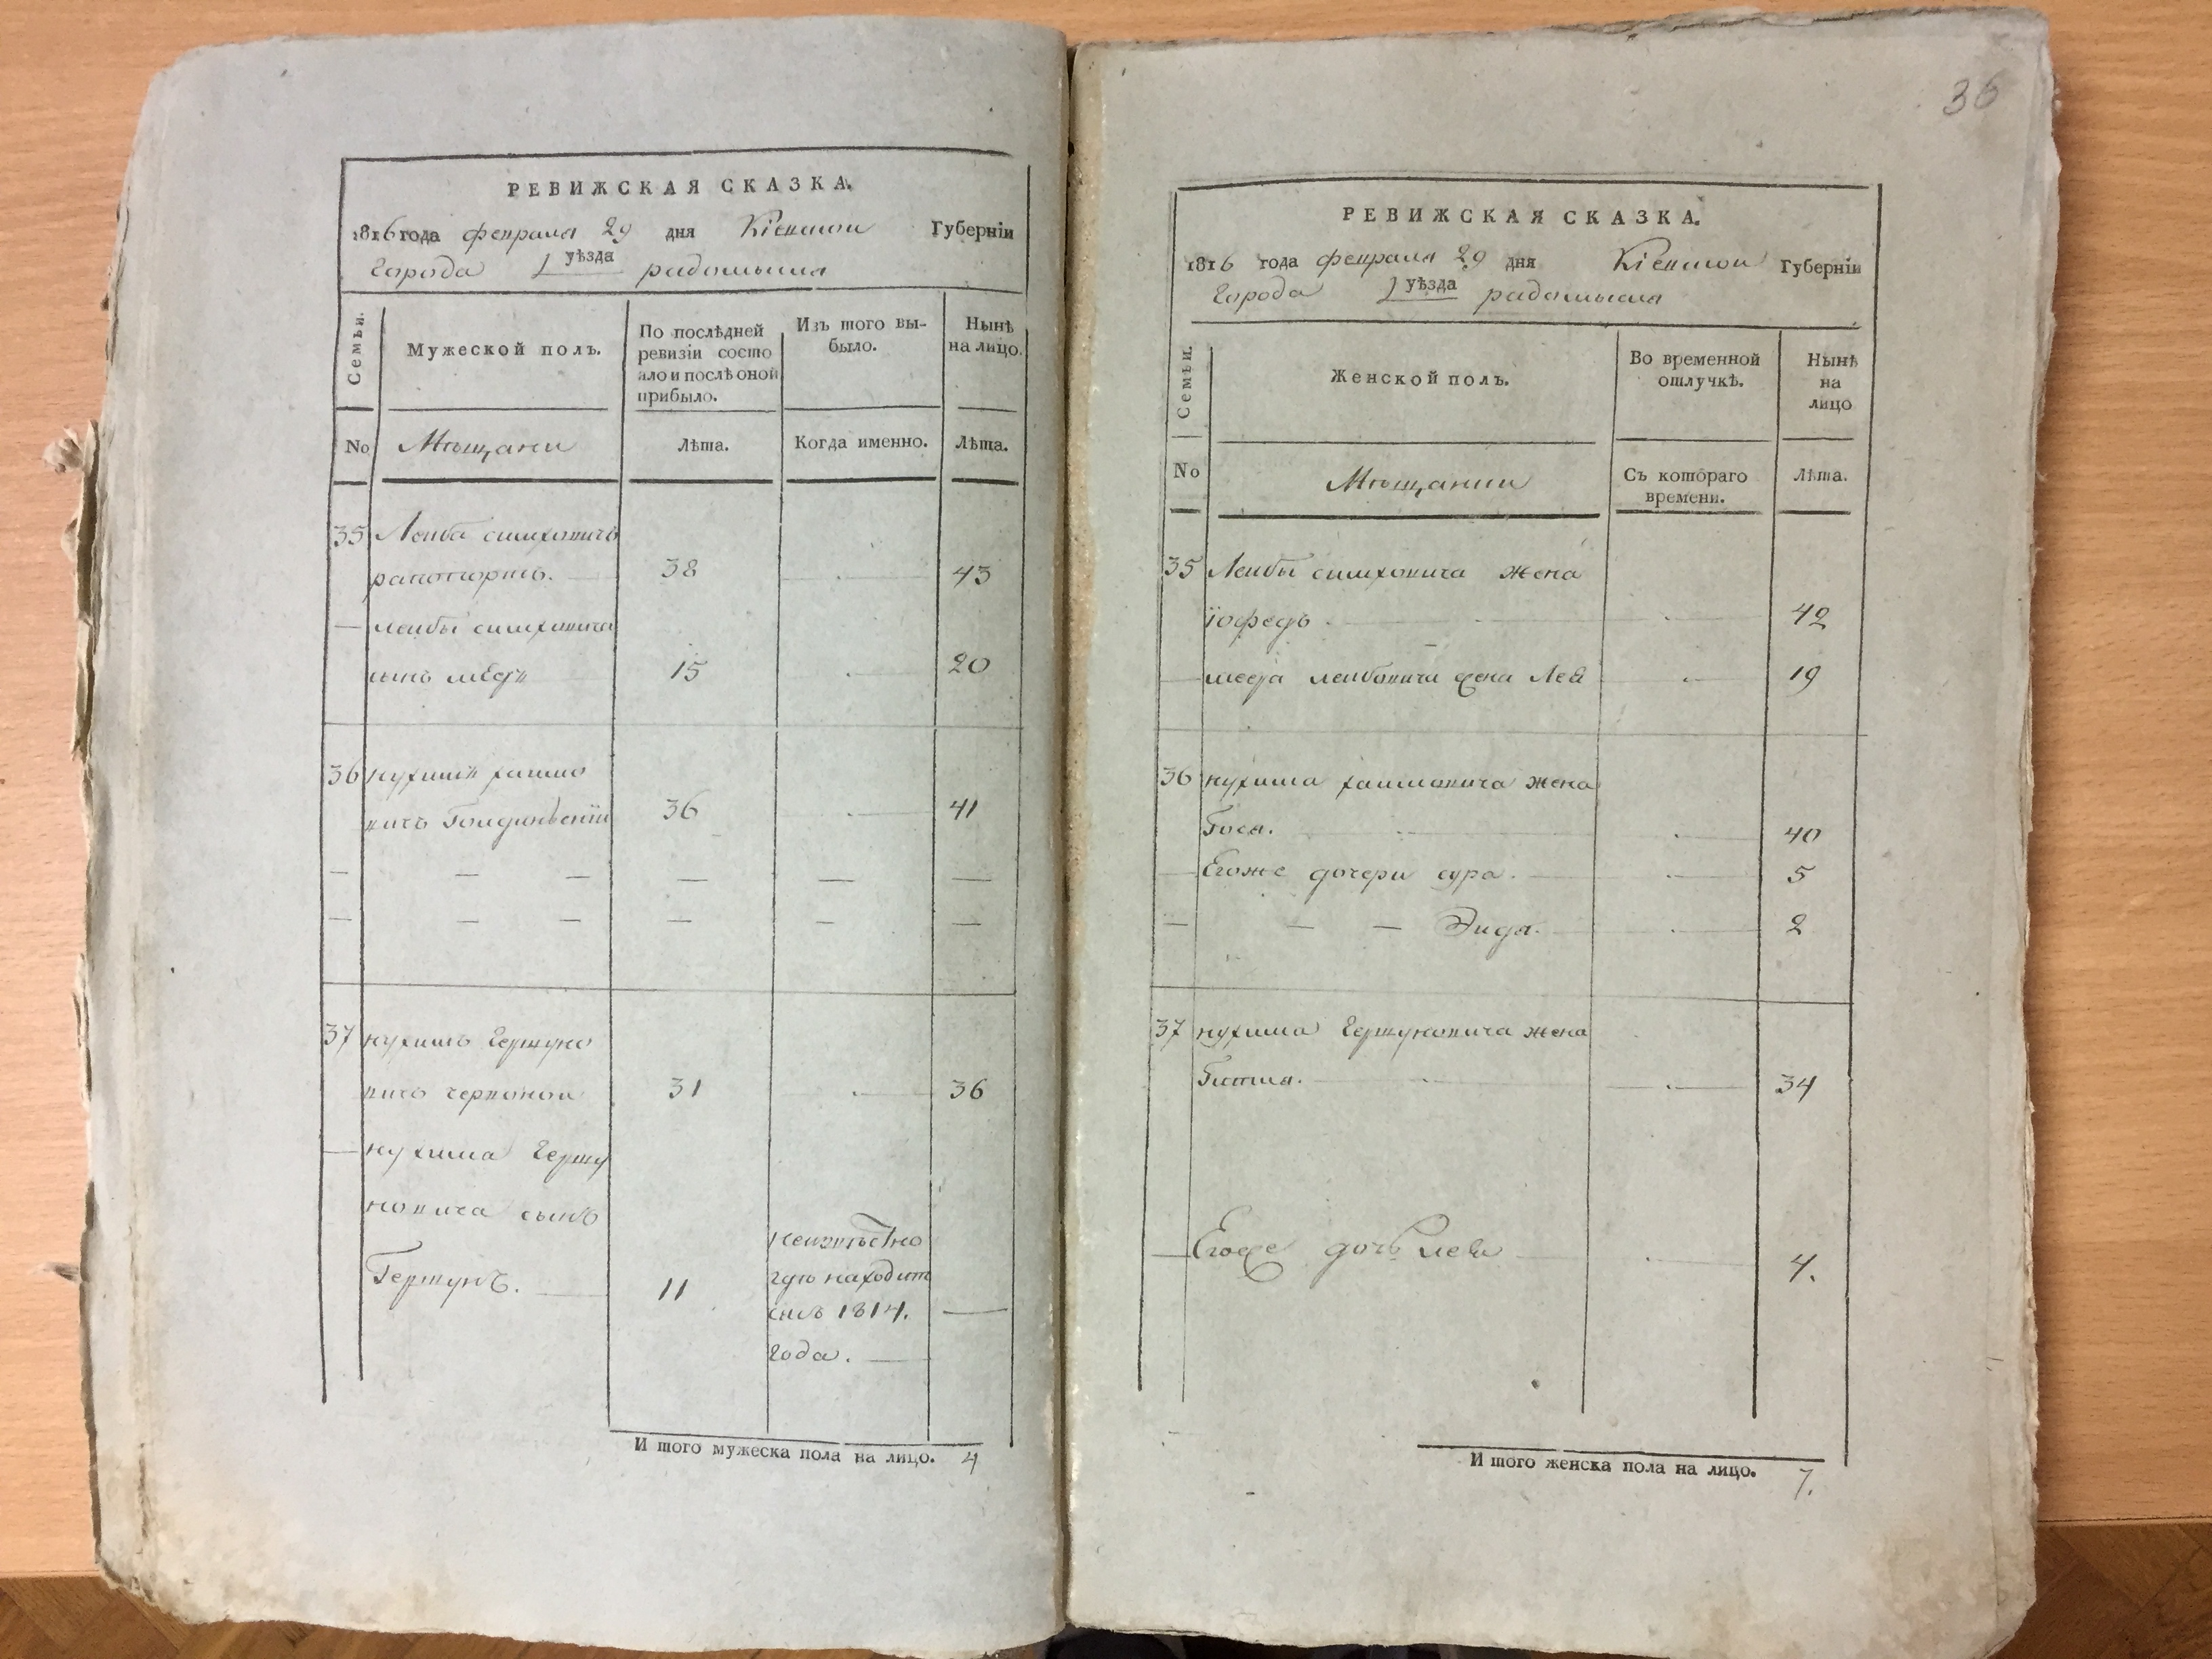 РЕВИЖСКАЯ СКАЗКА.
1816 года февраля 29 дня Кіевской Губерніи
Города уѣзда радомысля
Семьи.
Мужеской полъ.
По послѣдней ревизіи состо
яло и послѣ оной прибыло.
Изъ того вы-
было.
Нынѣ
на лицо.
No
Мѣщани
Лѣта.
Когда именно.
Лѣта.
35 Лейба симховичъ
рапопортъ. 38 43
лейбы симховича
сынъ 15 20
36 нухимъ хаимо
вичъ 36 41
37 нухимъ Гершуно
вичъ червоной 31 36
нухима Гершу
новича сынъ
Гершунъ. 11
неизвѣстно
где находит
ся съ 1814.
года.
И того мужеска пола на лицо. 4
36
РЕВИЖСКАЯ СКАЗКА.
1816 года февраля 29 дня Кіевской Губерніи
Города уѣзда радомысля
Семьи.
Женской полъ.
Во временной
отлучкѣ.
Нынѣ
на
лицо
No
Мѣщанки
Съ котораго
времени.
Лѣта.
35 Лейбы симховича жена
їофедъ 42
лейбовича жена Лея 19
36 нухима хаимовича жена
Гося. 40
Егоже дочери сура. 5
Энда. 2
37 нухима Гершуновича жена
34
Егоже дочь лея 4.
И того женска пола на лицо. 7.